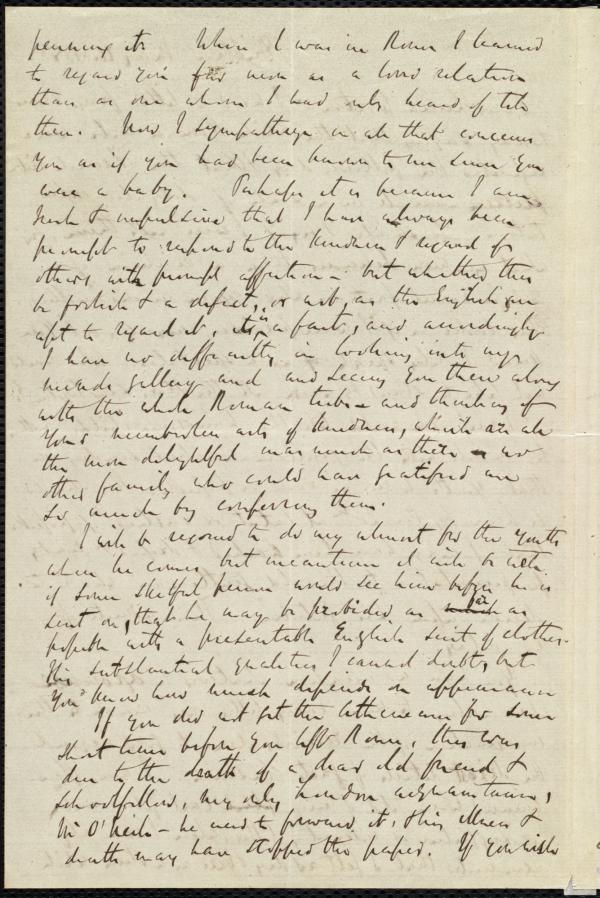 penning it. When I was in Rome I learned
to regard you far more as a loved relation
than as one whom I had only heard of till
then. Now I sympathize in all that concerns
you as if you had been known to me since you
were a baby. Perhaps it is because I am
Irish & impulsive that I have always been
prompt to respond to the kindness & regard of
others with prompt affection - but whether this
be foolish & a defect, or not, as the English are
apt to regard it, it is a fact, and accordingly
I have no difficulty in looking into my
minds gallery and and seeing you there along
with the whole Roman tribe - and thinking of
your numberless acts of kindness, which are all
the more delightful inasmuch as there is no
other family who could have gratified me
so much by conferring them.
I will be rejoiced to do my utmost for the youth
when he comes but meantime it will be well
if some skilful person would see him before he is
sent on, that he may be provided as far as
possible with a presentable English suit of clothes.
His substantial qualities I cannot doubt, but
you know how much depends on appearance
If you did not get the Athenaeum for some
short time before you left Rome, this was
due to the death of a dear old friend &
schoolfellow, my only London acquaintance,
Mr O'Neil - he used to forward it, & his illness &
death may have stopped the paper. If you wish